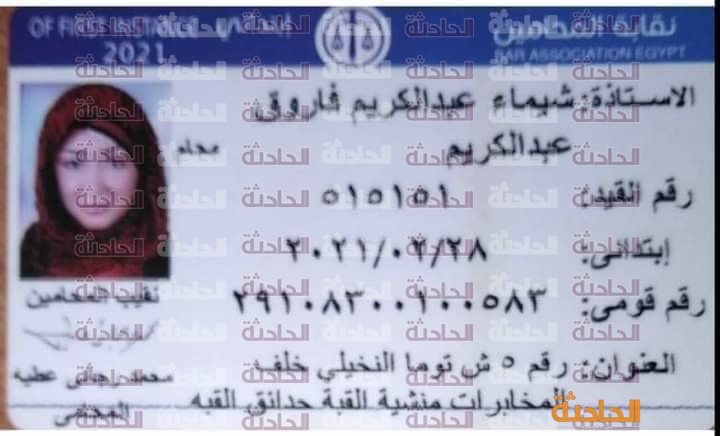 OF FIRST INSTANCE
2021
نقابة المحامين
BAR ASSOCIATION EGYPT
الاستاذة: شيماء عبدالكريم فاروق
عبدالكريم
محام
رقم القيد: ٥١٥١٥١
إبتدائى: ٢٠٢١/٠٢/٢٨
رقم قومى: ٢٩١٠٨٣٠٠١٠٠٥٨٣
العنوان: رقم ٥ ش توما النخيلي خلف
المخابرات منشية القبة حدائق القبه
نقيب المحامين
عطيه
الحادثة